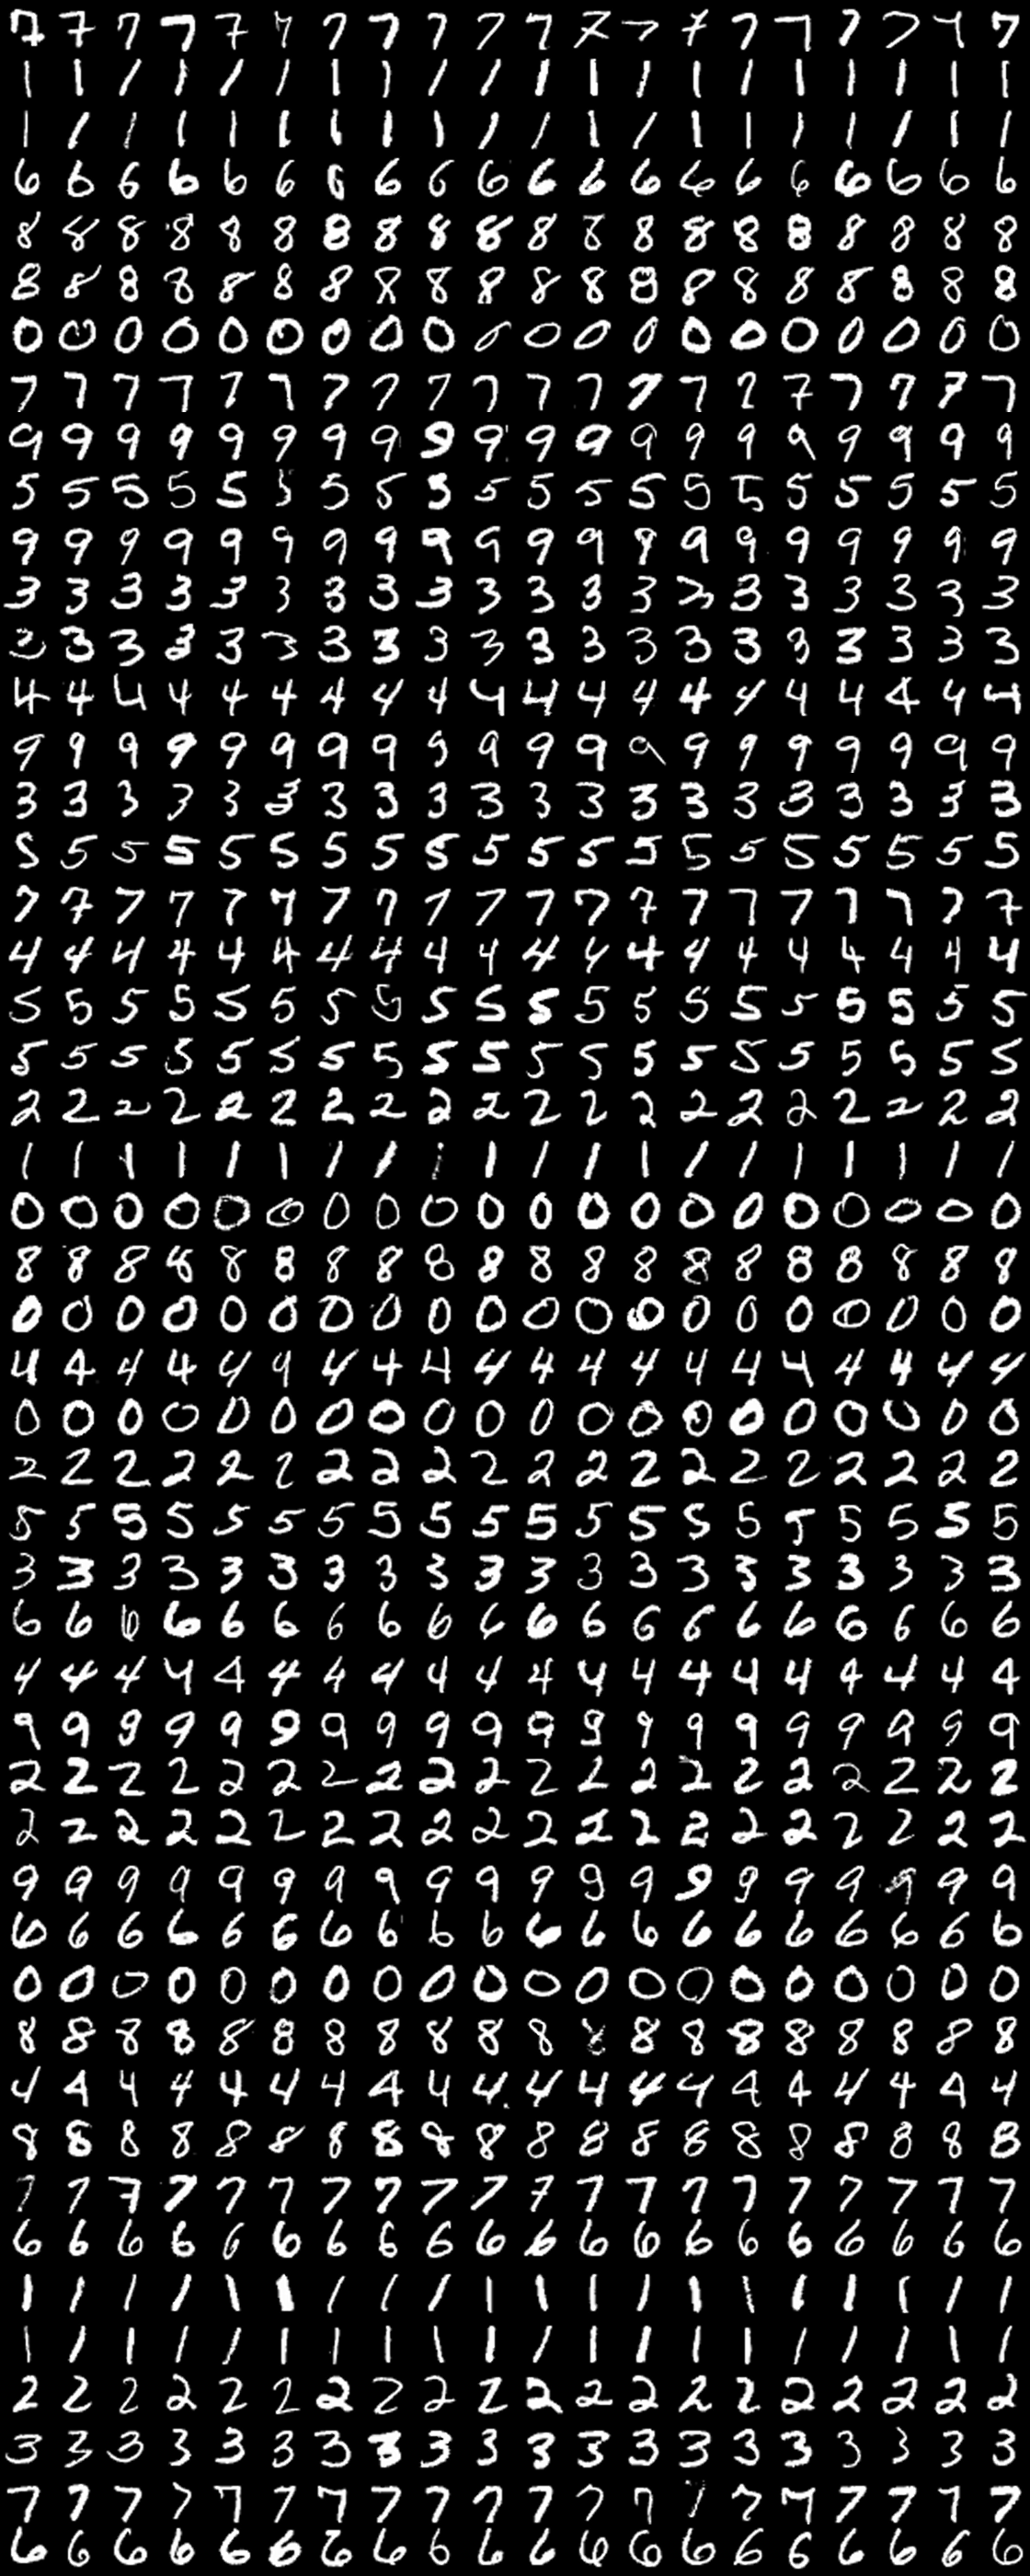 7 7 7 7 7 7 7 7 7 7 7 7 7 7 7 7 7 7 7 7
1 1 1 1 1 1 1 1 1 1 1 1 1 1 1 1 1 1 1 1
1 1 1 1 1 1 1 1 1 1 1 1 1 1 1 1 1 1 1 1
6 6 6 6 6 6 6 6 6 6 6 6 6 6 6 6 6 6 6 6
8 8 8 8 8 8 8 8 8 8 8 8 8 8 8 8 8 8 8 8
8 8 8 8 8 8 8 8 8 8 8 8 8 8 8 8 8 8 8 8
0 0 0 0 0 0 0 0 0 0 0 0 0 0 0 0 0 0 0 0
7 7 7 7 7 7 7 7 7 7 7 7 7 7 7 7 7 7 7 7
9 9 9 9 9 9 9 9 9 9 9 9 9 9 9 9 9 9 9 9
5 5 5 5 5 5 5 5 5 5 5 5 5 5 5 5 5 5 5 5
9 9 9 9 9 9 9 9 9 9 9 9 9 9 9 9 9 9 9 9
3 3 3 3 3 3 3 3 3 3 3 3 3 3 3 3 3 3 3 3
3 3 3 3 3 3 3 3 3 3 3 3 3 3 3 3 3 3 3 3
4 4 4 4 4 4 4 4 4 4 4 4 4 4 4 4 4 4 4 4
9 9 9 9 9 9 9 9 9 9 9 9 9 9 9 9 9 9 9 9
3 3 3 3 3 3 3 3 3 3 3 3 3 3 3 3 3 3 3 3
5 5 5 5 5 5 5 5 5 5 5 5 5 5 5 5 5 5 5 5
7 7 7 7 7 7 7 7 7 7 7 7 7 7 7 7 7 7 7 7
4 4 4 4 4 4 4 4 4 4 4 4 4 4 4 4 4 4 4 4
5 5 5 5 5 5 5 5 5 5 5 5 5 5 5 5 5 5 5 5
5 5 5 5 5 5 5 5 5 5 5 5 5 5 5 5 5 5 5 5
2 2 2 2 2 2 2 2 2 2 2 2 2 2 2 2 2 2 2 2
1 1 1 1 1 1 1 1 1 1 1 1 1 1 1 1 1 1 1 1
0 0 0 0 0 0 0 0 0 0 0 0 0 0 0 0 0 0 0 0
8 8 8 8 8 8 8 8 8 8 8 8 8 8 8 8 8 8 8 8
0 0 0 0 0 0 0 0 0 0 0 0 0 0 0 0 0 0 0 0
4 4 4 4 4 4 4 4 4 4 4 4 4 4 4 4 4 4 4 4
0 0 0 0 0 0 0 0 0 0 0 0 0 0 0 0 0 0 0 0
2 2 2 2 2 2 2 2 2 2 2 2 2 2 2 2 2 2 2 2
5 5 5 5 5 5 5 5 5 5 5 5 5 5 5 5 5 5 5 5
3 3 3 3 3 3 3 3 3 3 3 3 3 3 3 3 3 3 3 3
6 6 6 6 6 6 6 6 6 6 6 6 6 6 6 6 6 6 6 6
4 4 4 4 4 4 4 4 4 4 4 4 4 4 4 4 4 4 4 4
9 9 9 9 9 9 9 9 9 9 9 9 9 9 9 9 9 9 9 9
2 2 2 2 2 2 2 2 2 2 2 2 2 2 2 2 2 2 2 2
2 2 2 2 2 2 2 2 2 2 2 2 2 2 2 2 2 2 2 2
9 9 9 9 9 9 9 9 9 9 9 9 9 9 9 9 9 9 9 9
6 6 6 6 6 6 6 6 6 6 6 6 6 6 6 6 6 6 6 6
0 0 0 0 0 0 0 0 0 0 0 0 0 0 0 0 0 0 0 0
8 8 8 8 8 8 8 8 8 8 8 8 8 8 8 8 8 8 8 8
4 4 4 4 4 4 4 4 4 4 4 4 4 4 4 4 4 4 4 4
8 8 8 8 8 8 8 8 8 8 8 8 8 8 8 8 8 8 8 8
7 7 7 7 7 7 7 7 7 7 7 7 7 7 7 7 7 7 7 7
6 6 6 6 6 6 6 6 6 6 6 6 6 6 6 6 6 6 6 6
1 1 1 1 1 1 1 1 1 1 1 1 1 1 1 1 1 1 1 1
1 1 1 1 1 1 1 1 1 1 1 1 1 1 1 1 1 1 1 1
2 2 2 2 2 2 2 2 2 2 2 2 2 2 2 2 2 2 2 2
3 3 3 3 3 3 3 3 3 3 3 3 3 3 3 3 3 3 3 3
7 7 7 7 7 7 7 7 7 7 7 7 7 7 7 7 7 7 7 7
6 6 6 6 6 6 6 6 6 6 6 6 6 6 6 6 6 6 6 6